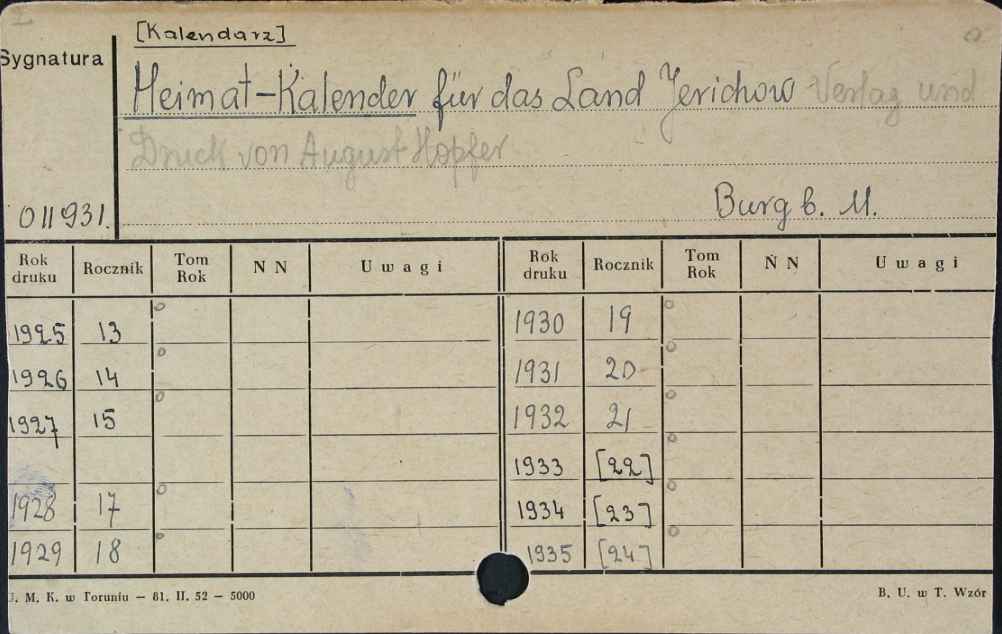 [Kalendarz]
Sygnatura
Heimat-Kalender für das Land Jerichow Verlag und
Druck von August Hopfer
Burg b. M.
011931.
Rok druku Rocznik Tom Rok N N Uwagi Rok druku Rocznik Tom Rok N N Uwagi
1925 13 1930 19
1926 14 1931 20
1927 15 1932 21
1933 [22]
1928 17 1934 [23]
1929 18 1935 [24]
U. M. K. w Toruniu — 81. II. 52 — 5000 B. U. w T. Wzór